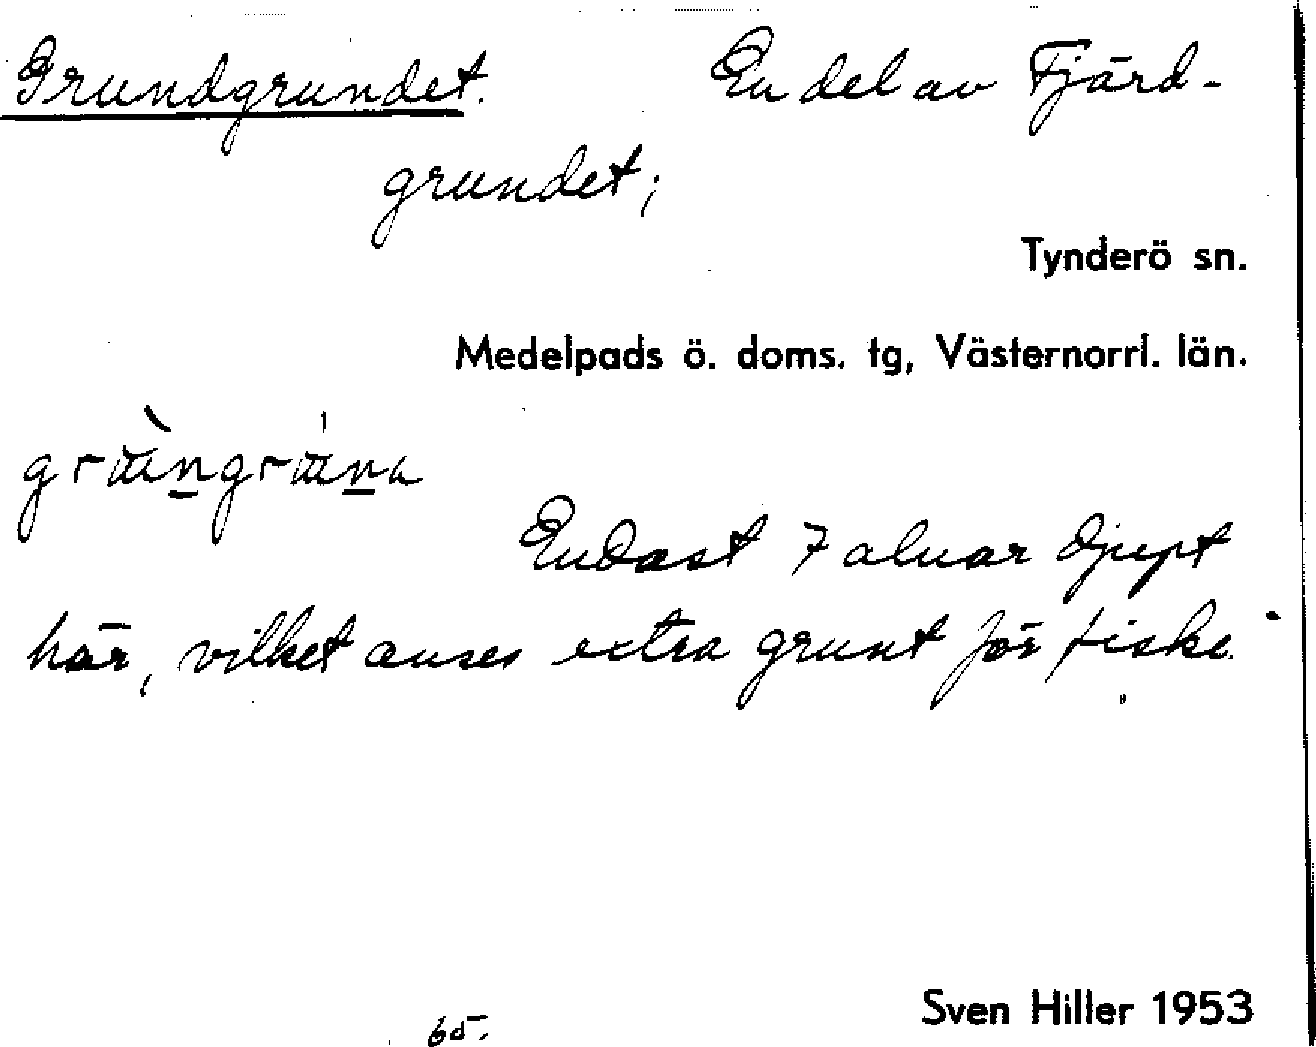 Grundgrundet. En del av Fjärd-
grundet;
Tynderö sn.
Medelpads ö. doms. tg, Västernorrl. län.
Endast 7 alnar djupt
här, vilket anses extra grunt för fiske.
Sven Hiller 1953
65.